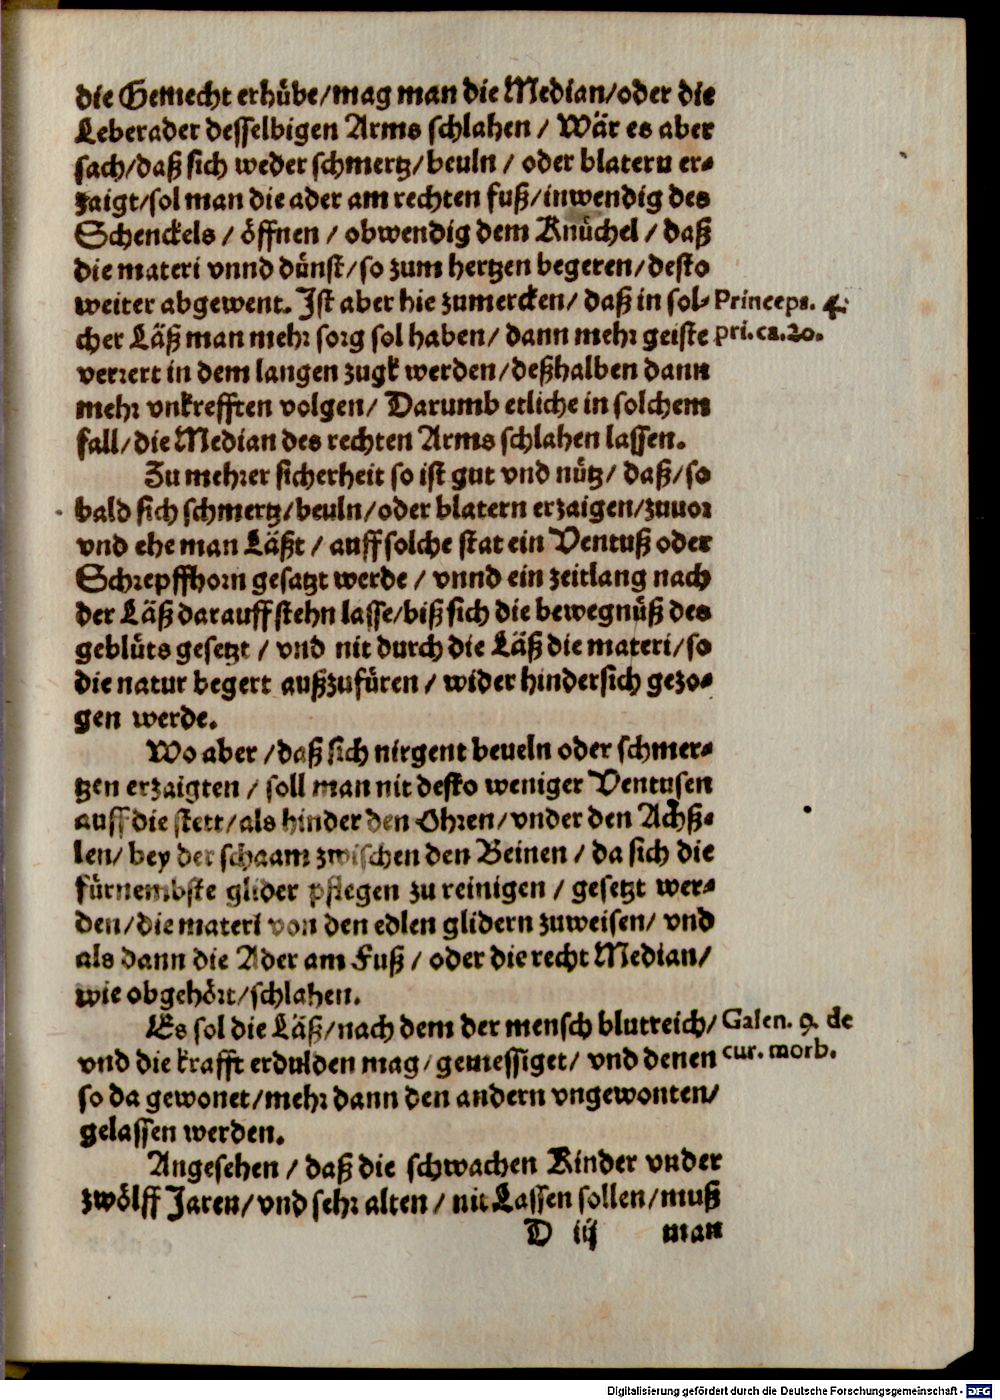 die Gemecht erhübe/mag man die Median/oder die
Leberader desselbigen Arms schlahen / Wär es aber
sach/daß sich weder schmertz/beuln / oder blatern er-
zaigt/sol man die ader am rechten fuß/inwendig des
Schenckels / öffnen / obwendig dem Knüchel / daß
die materi vnnd dünst/so zum hertzen begeren/desto
weiter abgewent. Ist aber hie zumercken/ daß in sol-
Princeps. 4.
cher Läß man mehr sorg sol haben/ dann mehr geiste
pri. ca. 20.
verzert in dem langen zugk werden/deßhalben dann
mehr vnkrefften volgen/ Darumb etliche in solchem
fall/die Median des rechten Arms schlahen lassen.
Zu mehrer sicherheit so ist gut vnd nütz/ daß/so
bald sich schmertz/beuln/oder blatern erzaigen/zuuor
vnd ehe man Läßt / auff solche stat ein Ventuß oder
Schrepffhorn gesatzt werde / vnnd ein zeitlang nach
der Läß darauff stehn lasse/biß sich die bewegnüß des
geblüts gesetzt / vnd nit durch die Läß die materi/so
die natur begert außzufüren / wider hindersich gezo-
gen werde.
Wo aber /daß sich nirgent beueln oder schmer-
tzen erzaigten / soll man nit desto weniger Ventusen
auff die stett/als hinder den Ohren/vnder den Achß-
len/ bey der schaam zwischen den Beinen / da sich die
fürnembste glider pflegen zu reinigen / gesetzt wer-
den/die materi von den edlen glidern zuweisen/ vnd
als dann die Ader am Fuß / oder die recht Median/
wie obgehört/schlahen.
Es sol die Läß/nach dem der mensch blutreich/
Galen. 9. de
vnd die krafft erdulden mag/gemessiget/ vnd denen
cur. morb.
so da gewonet/mehr dann den andern vngewonten/
gelassen werden.
Angesehen / daß die schwachen Kinder vnder
zwölff Jaren/vnd sehr alten / nit Lassen sollen/muß
D iij man
Digitalisierung gefördert durch die Deutsche Forschungsgemeinschaft - DFG